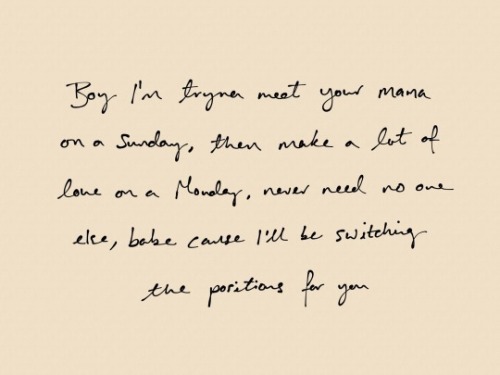 Boy I'm tryna meet your mama
on a Sunday, then make a lot of
love on a Monday, never need no one
else, babe cause I'll be switching
the positions for you